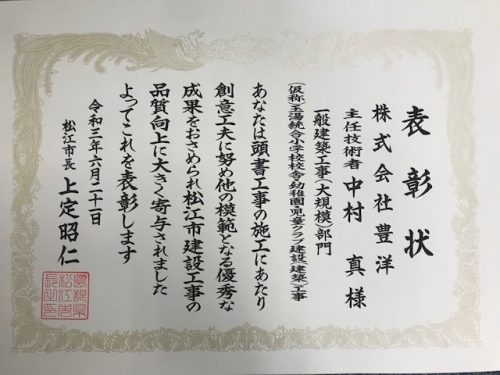 表彰状
株式会社豊洋
主任技術者 中村 真 様
一般建築工事(大規模)部門
(仮称)玉湯統合小学校校舎・幼稚園・児童クラブ建設(建築)工事
あなたは頭書工事の施工にあたり
創意工夫に努め他の模範となる優秀な
成果をおさめられ松江市建設工事の
品質向上に大きく寄与されました
よってこれを表彰します
令和三年六月二十一日
松江市長 上定昭仁
島根県
松江市
長之印